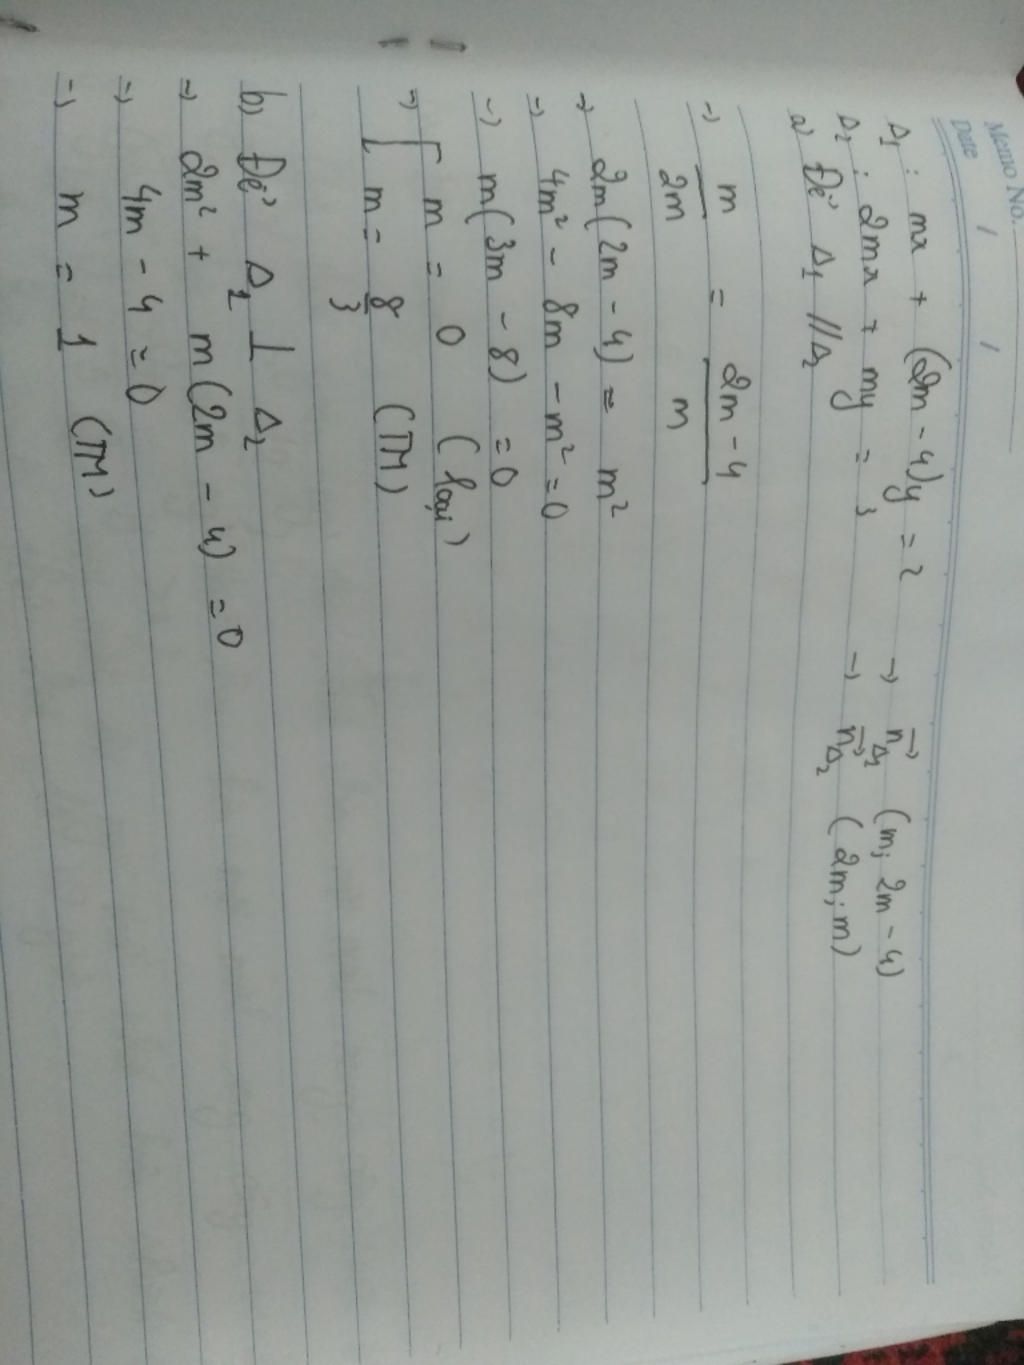 Memo No.
Date / /
Δ₁ : mx + (2m - 4)y = 2 → n⃗Δ₁ (m; 2m - 4)
Δ₂ : 2mx + my = 3 → n⃗Δ₂ (2m; m)
a) Để Δ₁ // Δ₂
=> m/2m = (2m - 4)/m
=> 2m(2m - 4) = m²
=> 4m² - 8m - m² = 0
=> m(3m - 8) = 0
=> [ m = 0 (loại)
[ m = 8/3 (TM)
b) Để Δ₁ ⊥ Δ₂
=> 2m² + m(2m - 4) = 0
=> 4m - 4 = 0
=> m = 1 (TM)